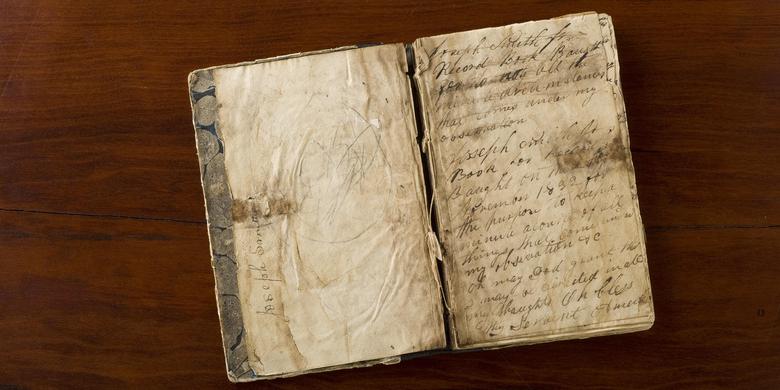 Joseph Smith
Record Book Baught
for to note all the
minute circumstances
that comes under my
observation
Joseph Smith
Book for Record
Baught on the
November 1832 for
the purpose to keep a
minute acount of all
things that come under
my observation &c
oh may God grant that
I may be directed in all
my thoughts Oh bless
thy Servent Amen